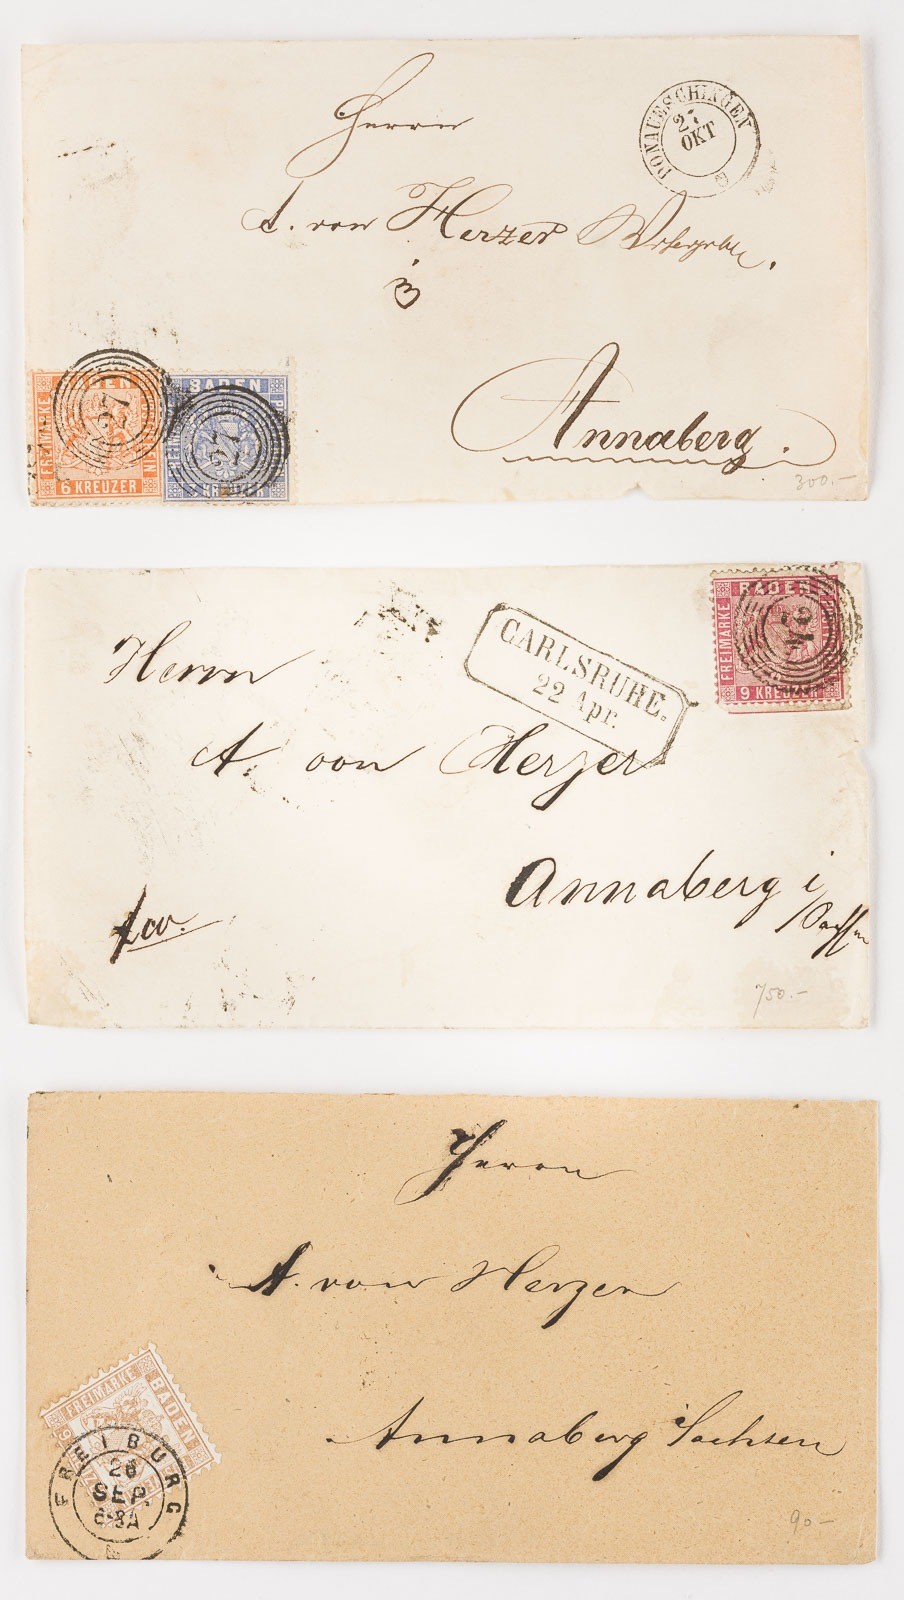 Herrn
DONAUESCHINGEN
27
OKT
A. von Herzer
in
Annaberg.
BADEN
FREIMARKE
6 KREUZER
27
BADEN
FREIMARKE
27
300.–
BADEN
FREIMARKE
9 KREUZER
24
CARLSRUHE.
22 Apr.
Herrn
A. von Herzer
Annaberg i/Sachsen
fco.
750.–
Herrn
A. von Herzer
Annaberg i Sachsen
FREIMARKE
BADEN
9
FREIBURG
26
SEP.
6-8A
90–